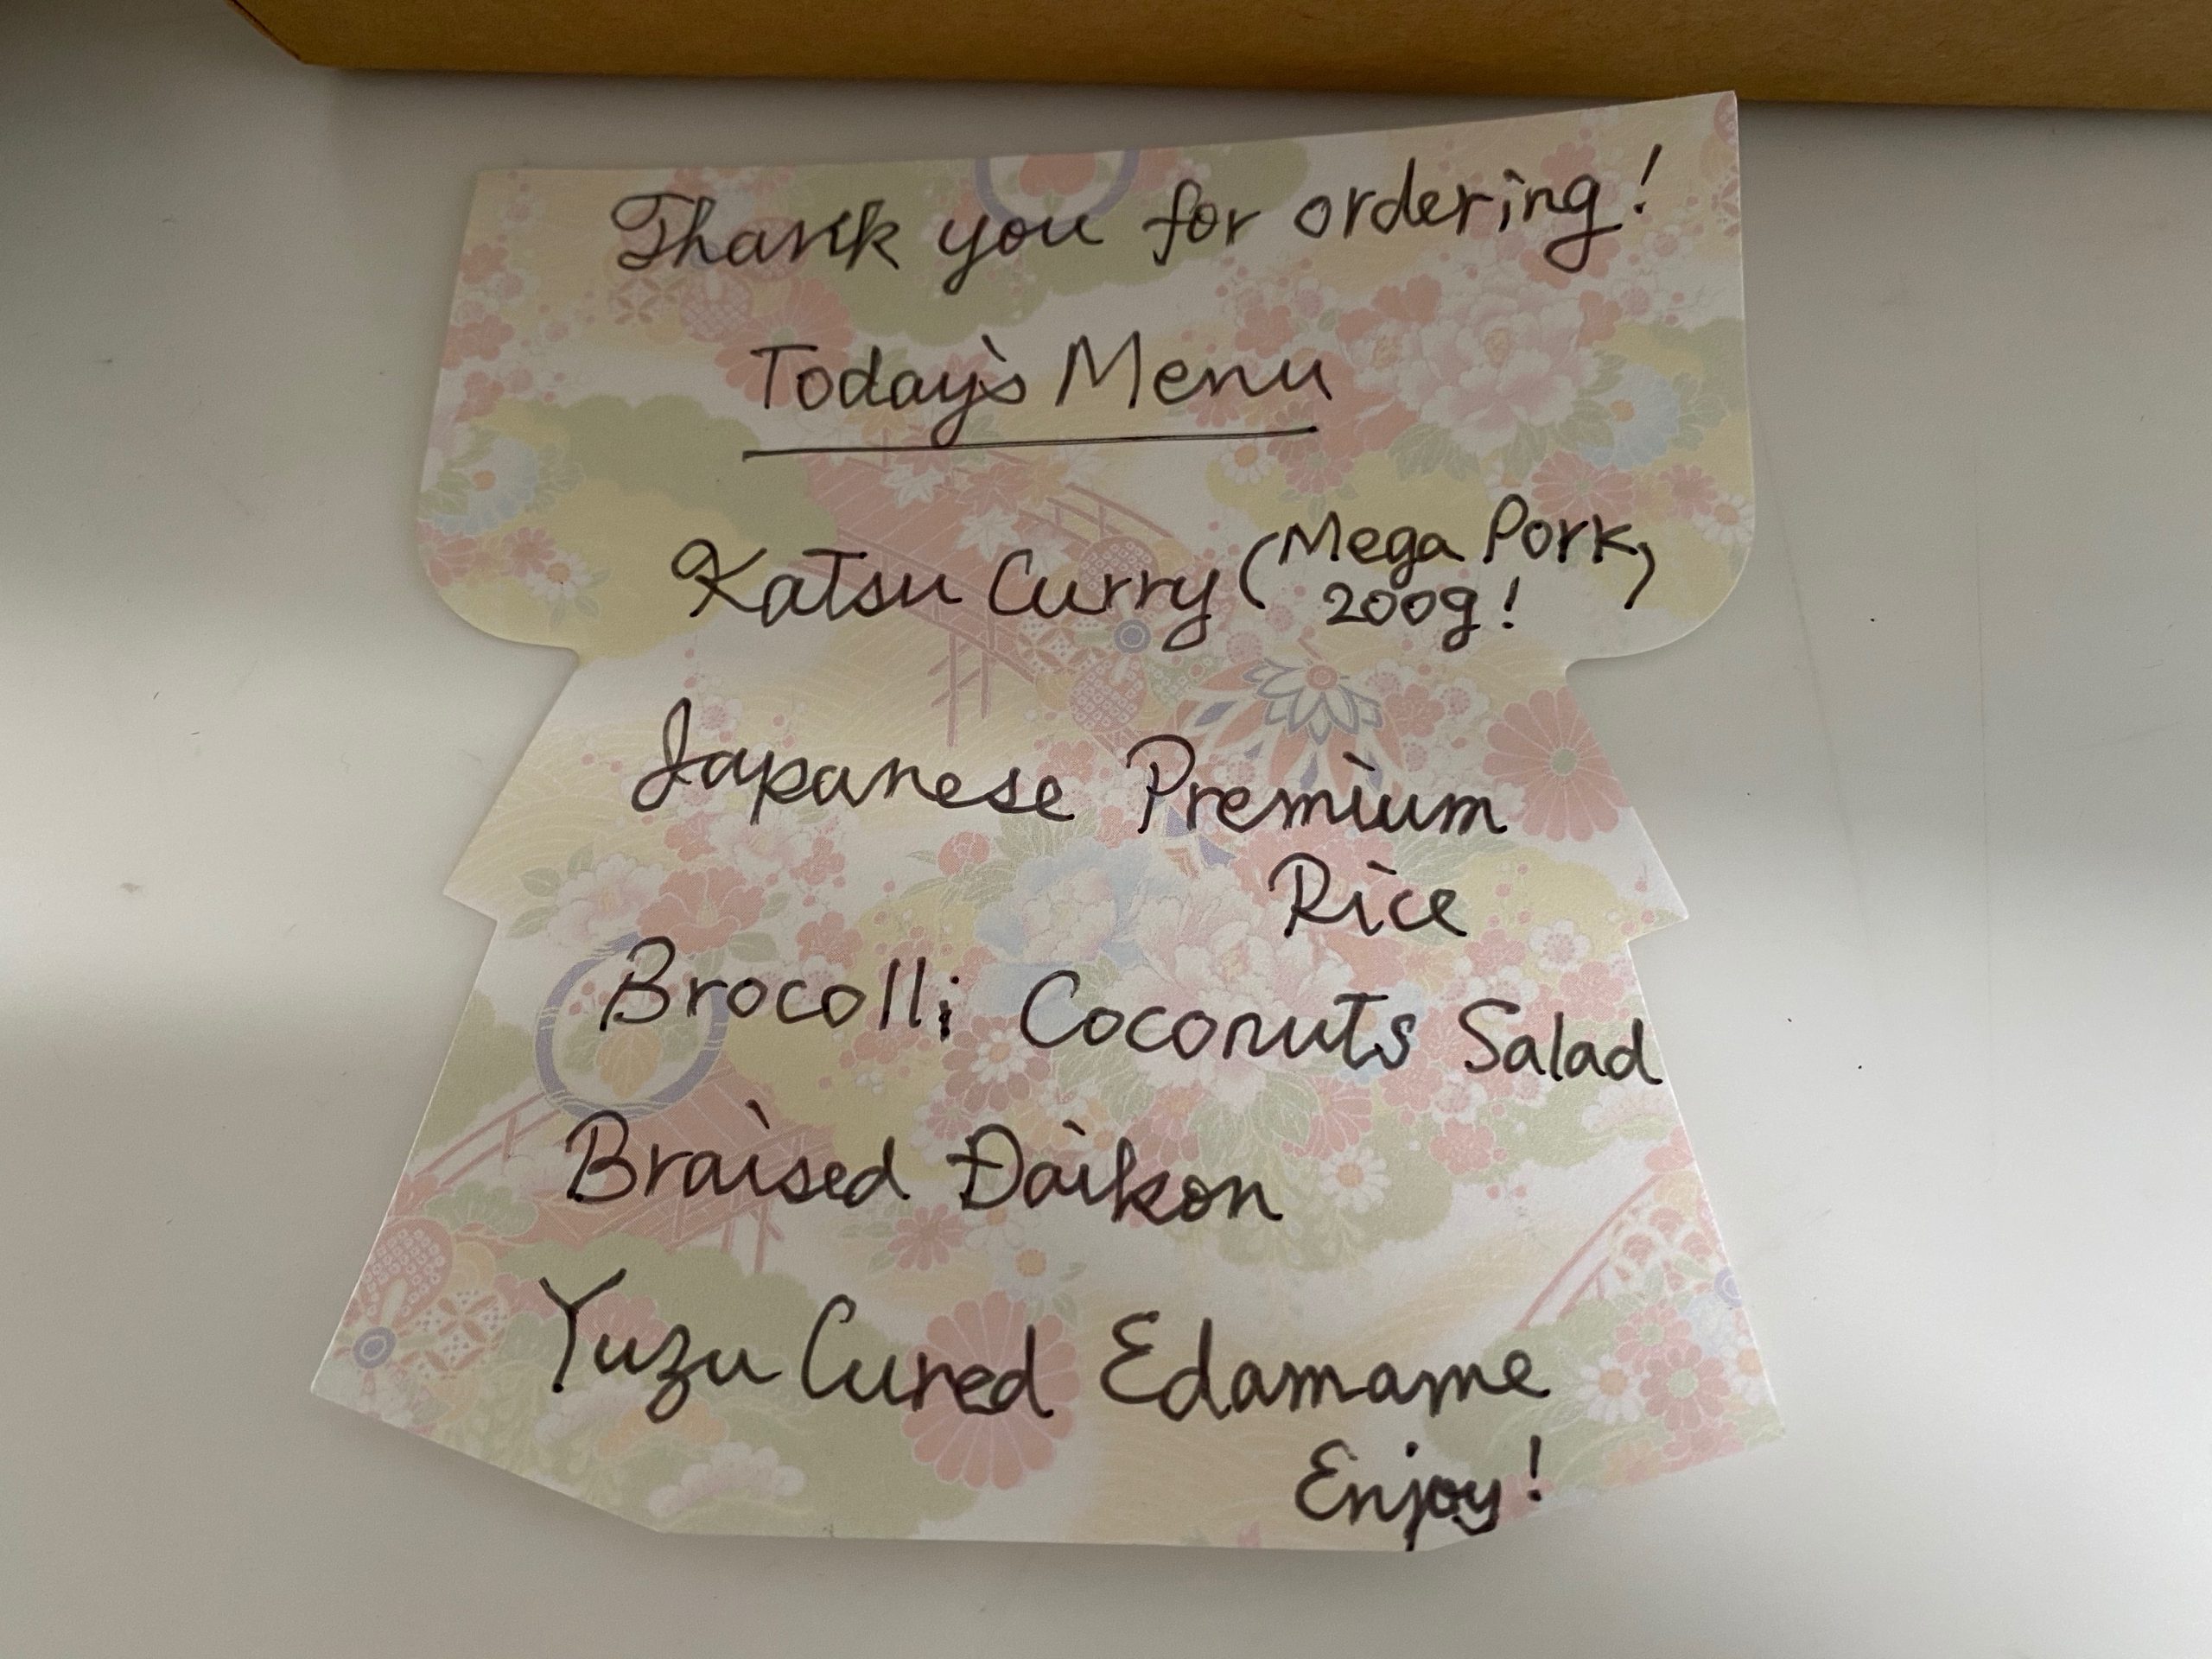 Thank you for ordering!
Today's Menu
Katsu Curry (Mega Pork, 200g!)
Japanese Premium
Rice
Brocolli Coconuts Salad
Braised Daikon
Yuzu Cured Edamame
Enjoy!